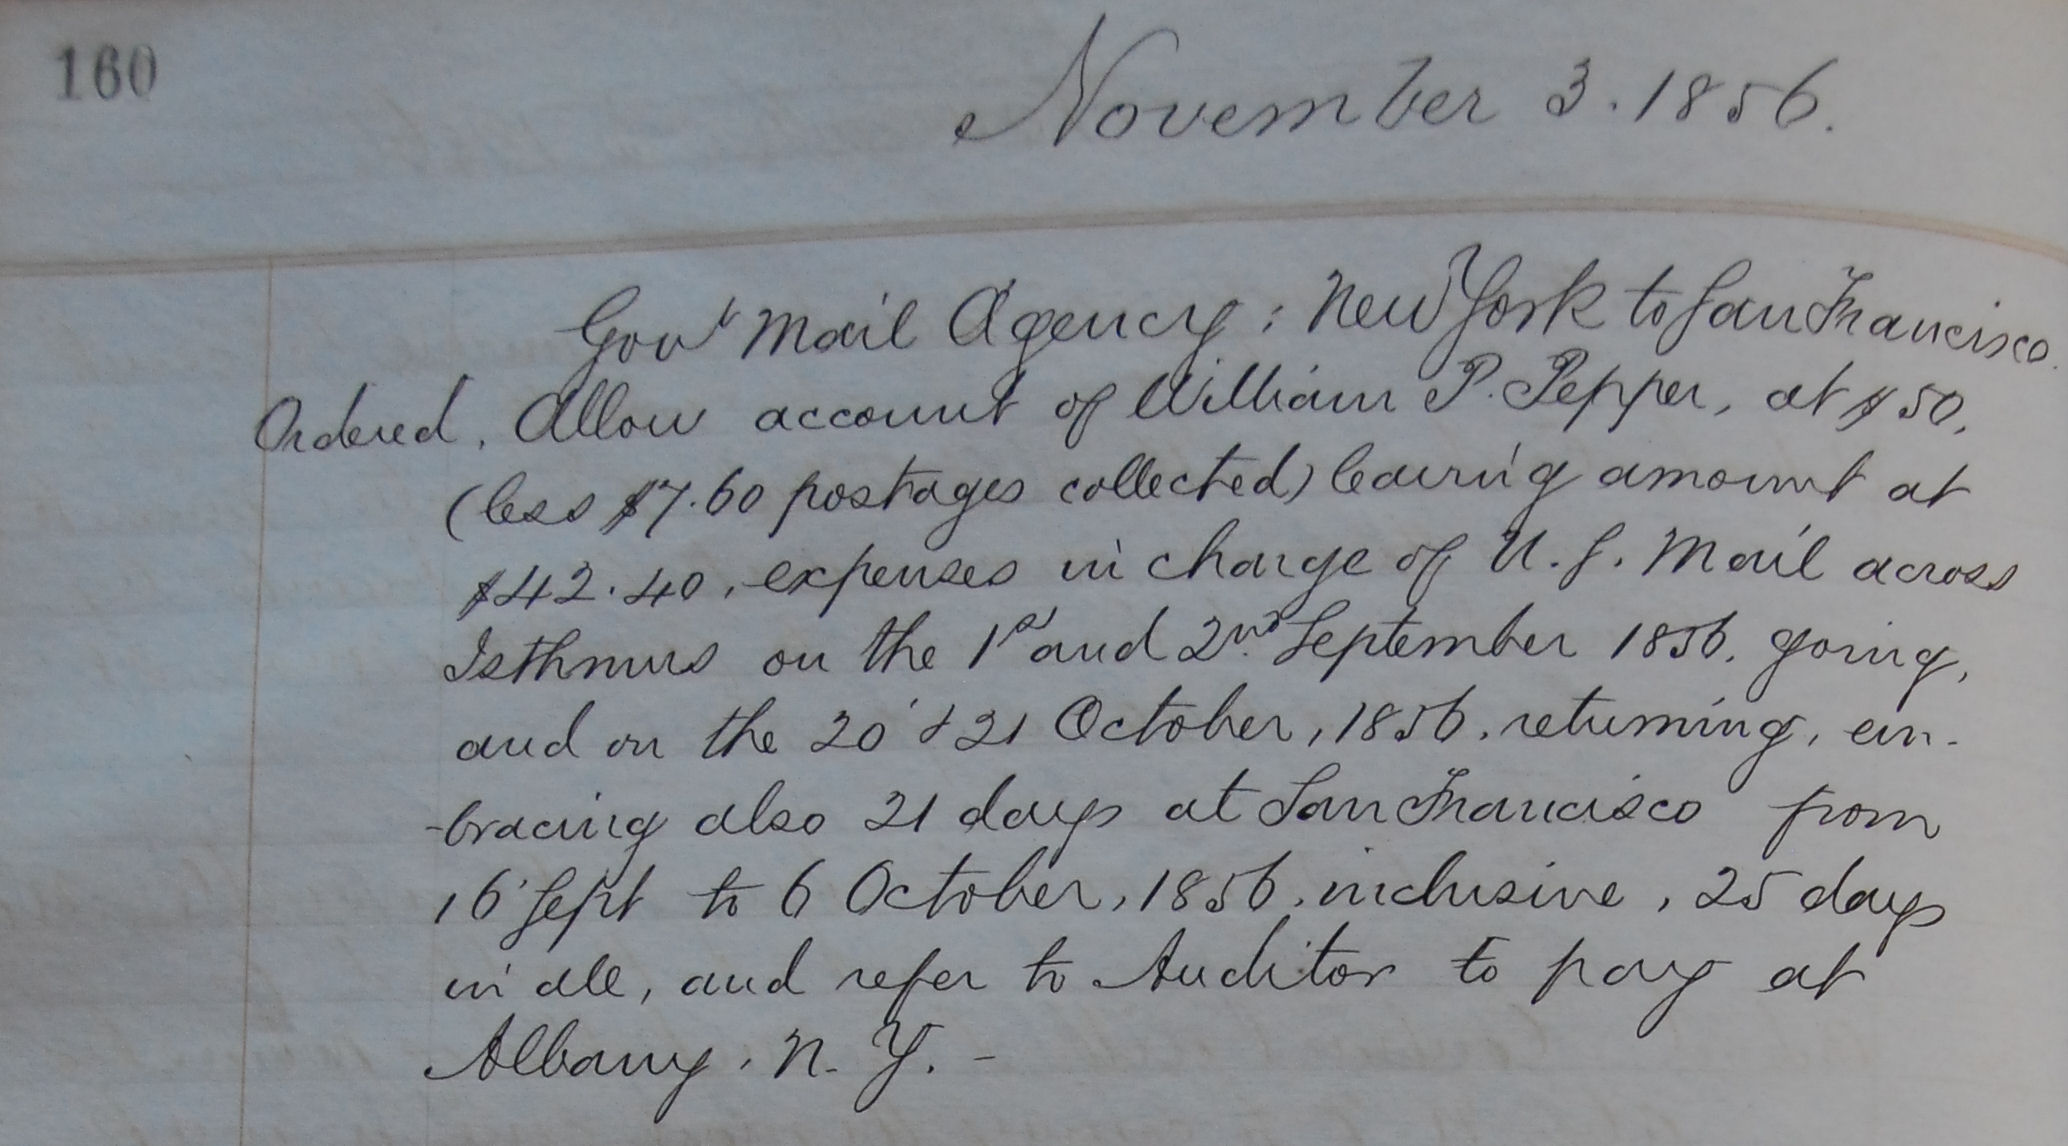 160
November 3. 1856.
Govt Mail Agency: New York to San Francisco.
Ordered. Allow account of William P. Pepper, at $50,
(less $7.60 postages collected) leaving amount at
$42.40, expenses in charge of U.S. Mail across
Isthmus on the 1st and 2nd September 1856. going,
and on the 20' & 21 October, 1856. returning, em-
-bracing also 21 days at San Francisco from
16' Sept to 6 October, 1856. inclusive, 25 days
in all, and refer to Auditor to pay at
Albany. N. Y. -